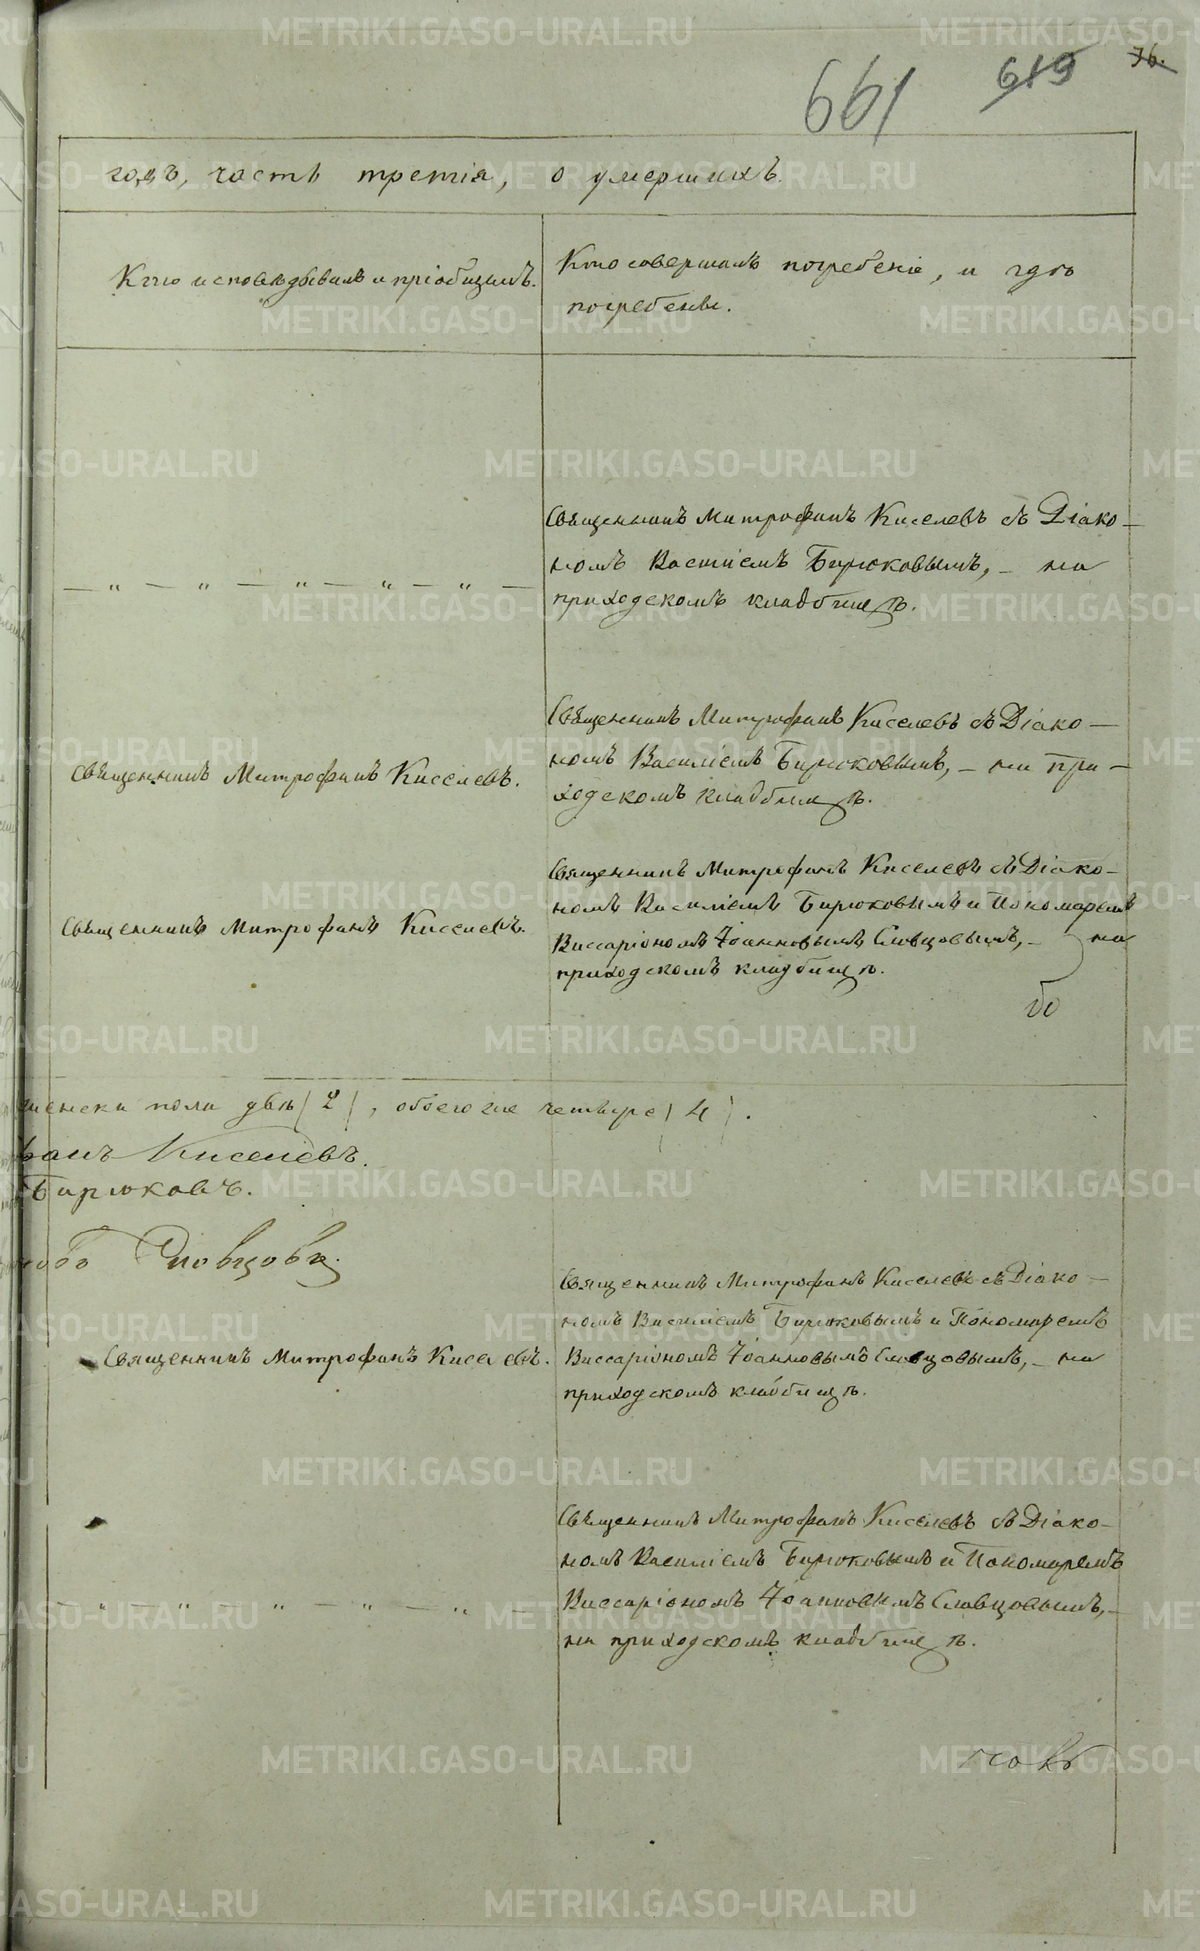 661 619 76.
годъ, часть третія, о умершихъ.
Кто исповѣдывалъ и пріобщилъ.
Кто совершалъ погребеніе, и гдѣ
погребены.
Священникъ Митрофанъ Киселевъ съ Діако-
номъ Василіемъ Бирюковымъ, - на
приходскомъ кладбищѣ.
— „ — „ — „ — „ — „ —
Священникъ Митрофанъ Киселевъ.
Священникъ Митрофанъ Киселевъ съ Діако-
номъ Василіемъ Бирюковымъ, - на при-
ходскомъ кладбищѣ.
Священникъ Митрофанъ Киселевъ.
Священникъ Митрофанъ Киселевъ съ Діако-
номъ Василіемъ Бирюковымъ и Пономаремъ
Виссаріономъ Іоанновымъ Словцовымъ, - на
приходскомъ кладбищѣ.
женска пола двѣ (2), обоего же четверо (4).
фанъ Киселевъ.
Бирюковъ.
Словцовъ.
Священникъ Митрофанъ Киселевъ.
Священникъ Митрофанъ Киселевъ съ Діако-
номъ Василіемъ Бирюковымъ и Пономаремъ
Виссаріономъ Іоанновымъ Словцовымъ, - на
приходскомъ кладбищѣ.
— „ — „ — „ — „ — „ —
Священникъ Митрофанъ Киселевъ съ Діако-
номъ Василіемъ Бирюковымъ и Пономаремъ
Виссаріономъ Іоанновымъ Словцовымъ, -
на приходскомъ кладбищѣ.
METRIKI.GASO-URAL.RU